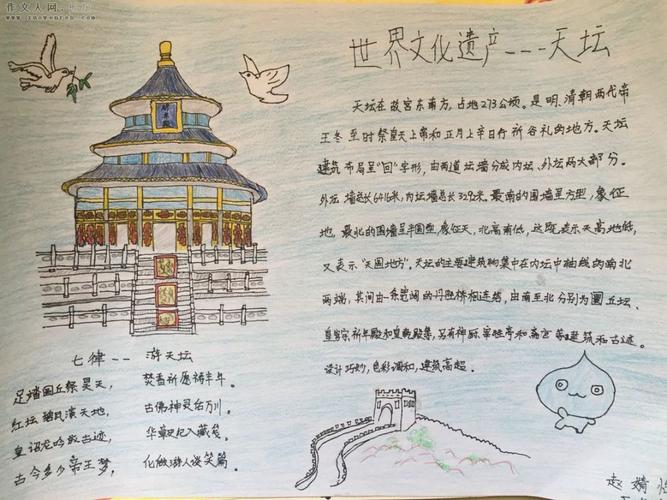 作文人网
www.zuowenren.com
世界文化遗产---天坛
祈年殿
天坛在故宫东南方，占地273公顷。是明、清朝两代帝
王冬至时祭皇天上帝和正月上辛日行祈谷礼的地方。天坛
建筑布局呈"回"字形，由两道坛墙分成内坛、外坛两大部分。
外坛墙总长6416米，内坛墙总长3292米。最南的围墙呈方型，象征
地，最北的围墙呈半圆型，象征天，北高南低，这既表示天高地低，
又表示"天圆地方"。天坛的主要建筑物集中在内坛中轴线的南北
两端，其间由一条宽阔的丹陛桥相连结，由南至北分别为圜丘坛、
皇穹宇祈年殿和皇乾殿等，另有神厨宰牲亭和斋宫等建筑和古迹。
设计巧妙，色彩调和，建筑高超。
七律--游天坛
足踏圜丘祭昊天， 焚香祈愿祷丰年。
红坛碧瓦演天地， 古佛神灵台万川。
皇诏龙吟教古迹， 华
古今多少帝王梦， 化做游人谈笑篇。
赵婧